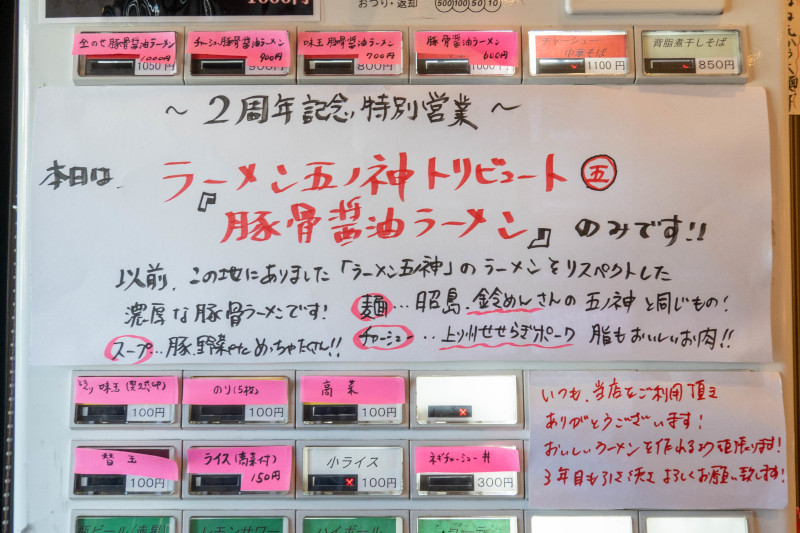 おつり・返却 500 100 50 10
全のせ豚骨醤油ラーメン 1000円
チャーシュー豚骨醤油ラーメン 900円
味玉豚骨醤油ラーメン 700円
豚骨醤油ラーメン 600円
チャーシュー中華そば 1100円
背脂煮干しそば 850円
～2周年記念特別営業～
本日は、ラーメン五ノ神トリビュート 五
『豚骨醤油ラーメン』のみです!!
以前、この地にありました「ラーメン五ノ神」のラーメンをリスペクトした
濃厚な豚骨ラーメンです!
麺…昭島・鈴めんさんの五ノ神と同じもの!
スープ…豚、野菜やらためっちゃたくさん!!
チャーシュー…上州せせらぎポーク 脂もおいしいお肉!!
味玉 100円
のり(5枚) 100円
高菜 100円
替玉 100円
ライス(高菜付) 150円
小ライス 100円
ネギチャーシュー丼 300円
いつも、当店をご利用頂き
ありがとうございます!
おいしいラーメンを作れるよう頑張ります!
3年目も引き続きよろしくお願い致します!
レモンサワー
ハイボール